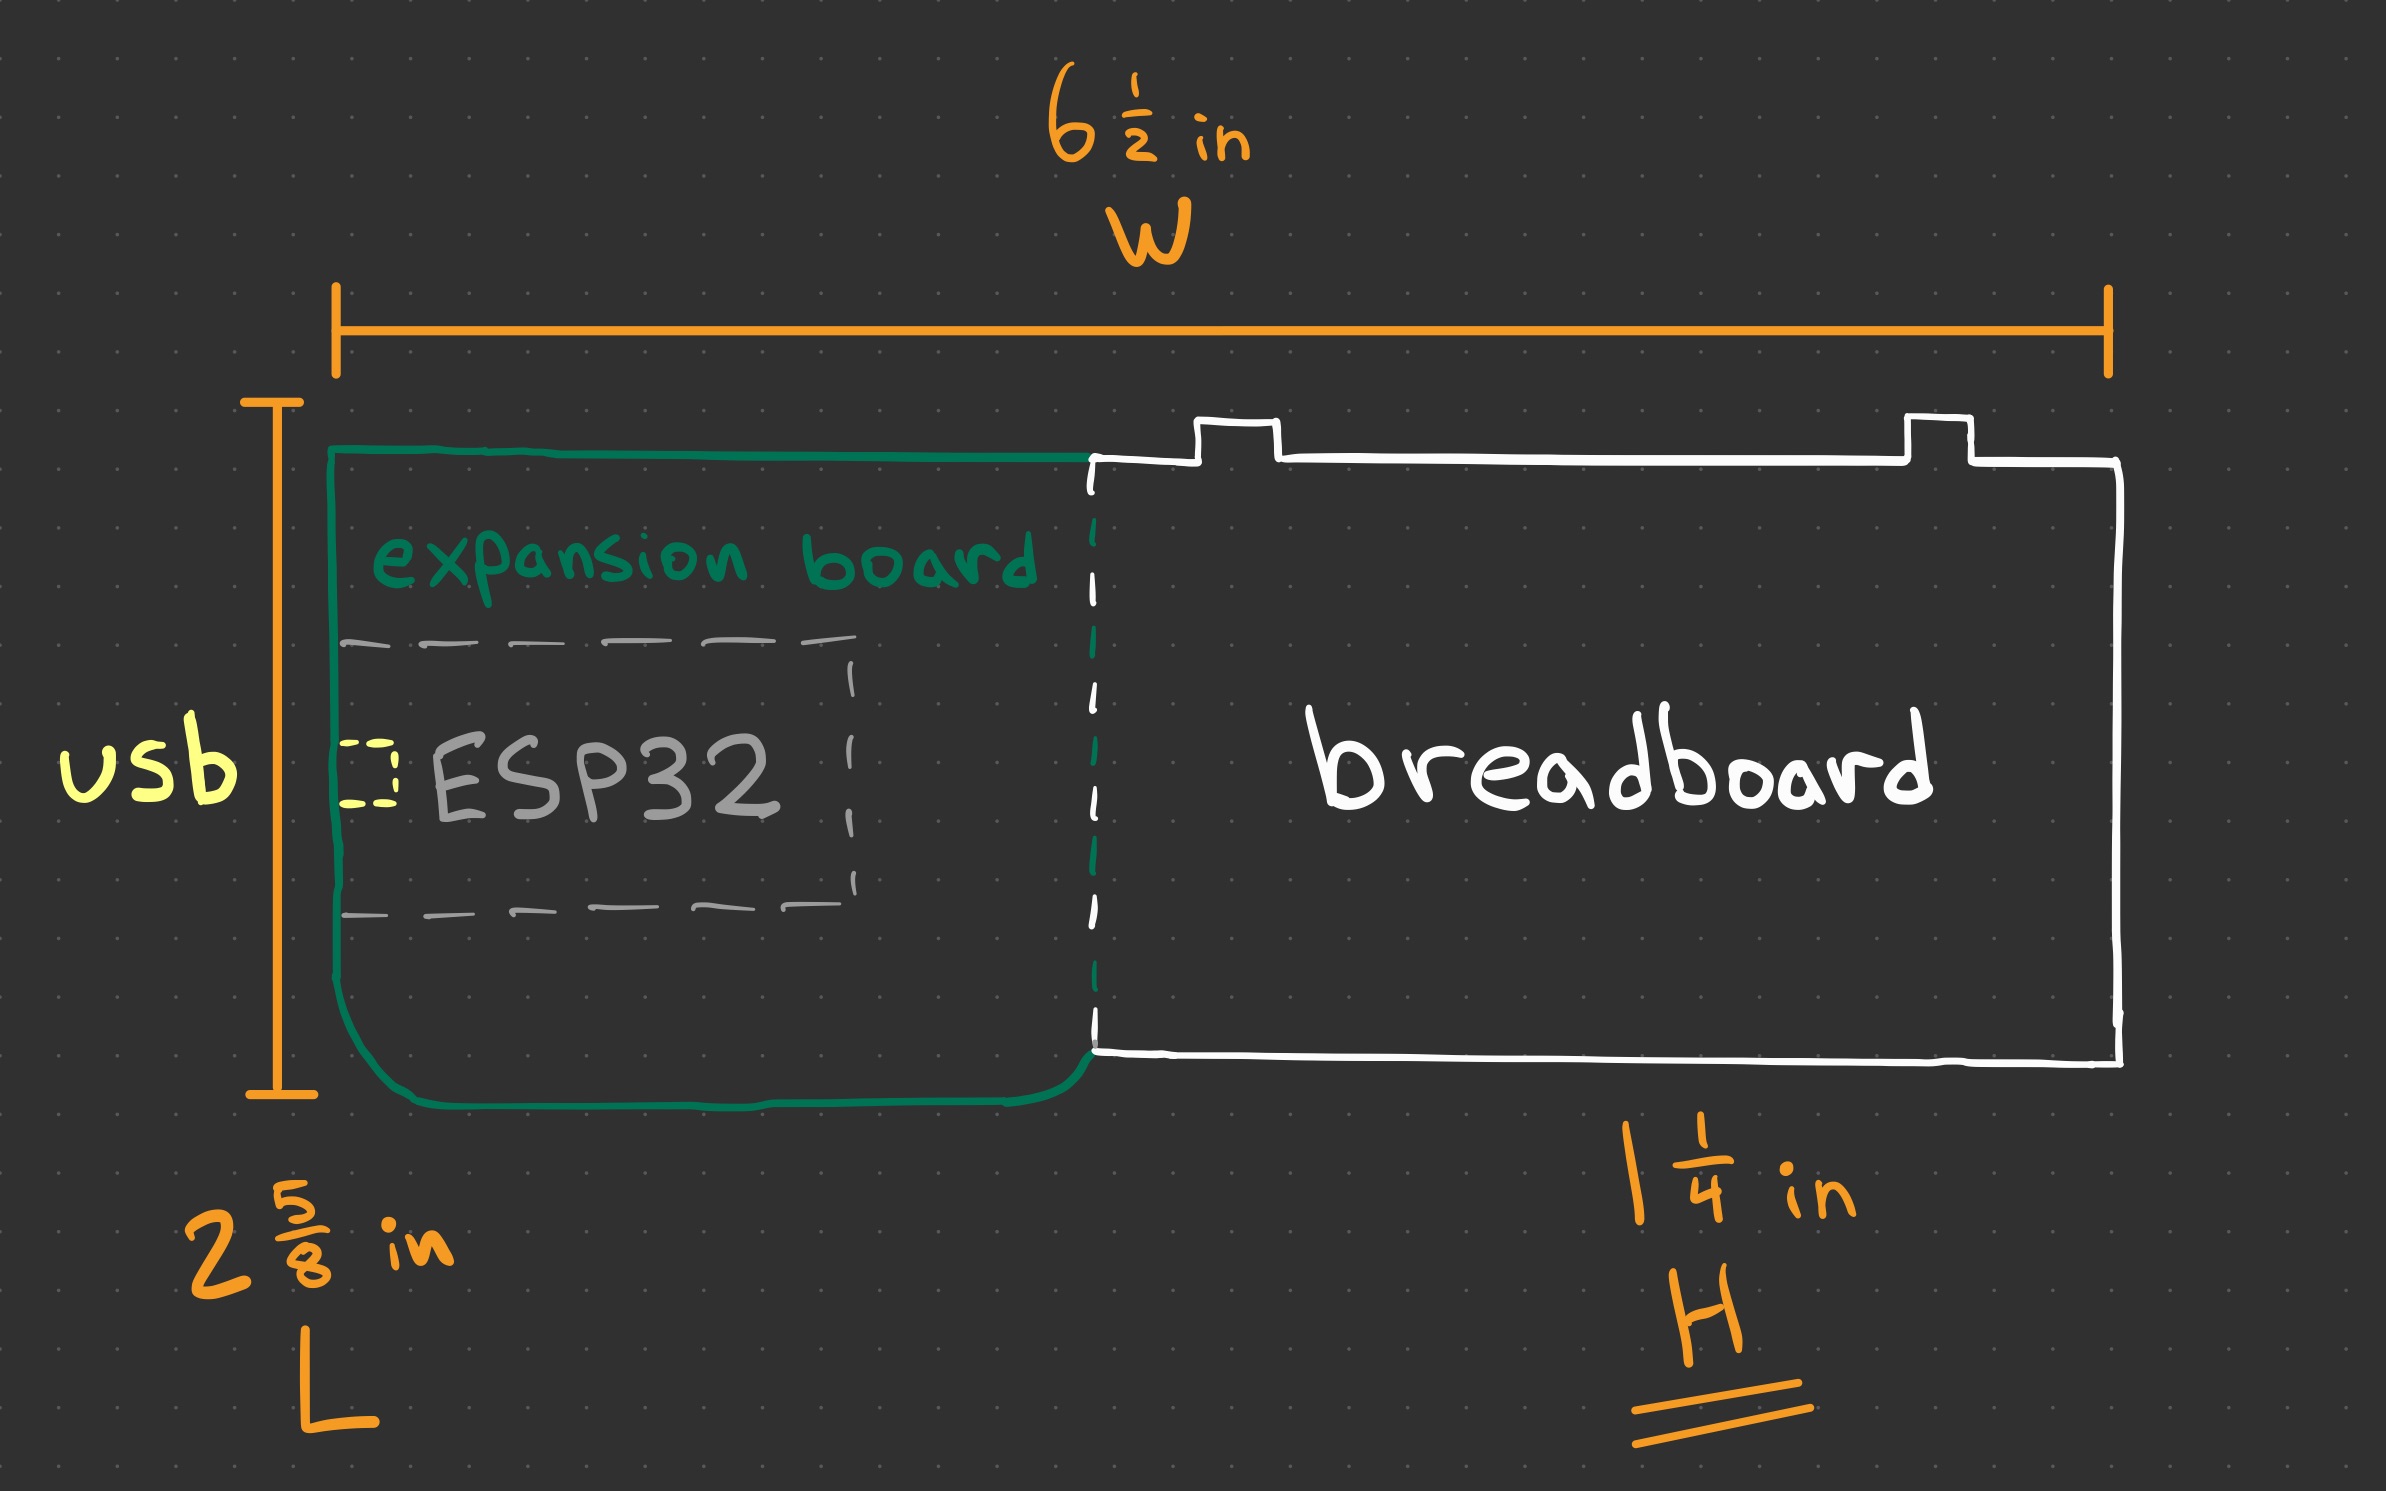 6 1/2 in
W
expansion board
usb
ESP32
breadboard
2 5/8 in
L
1 1/4 in
H